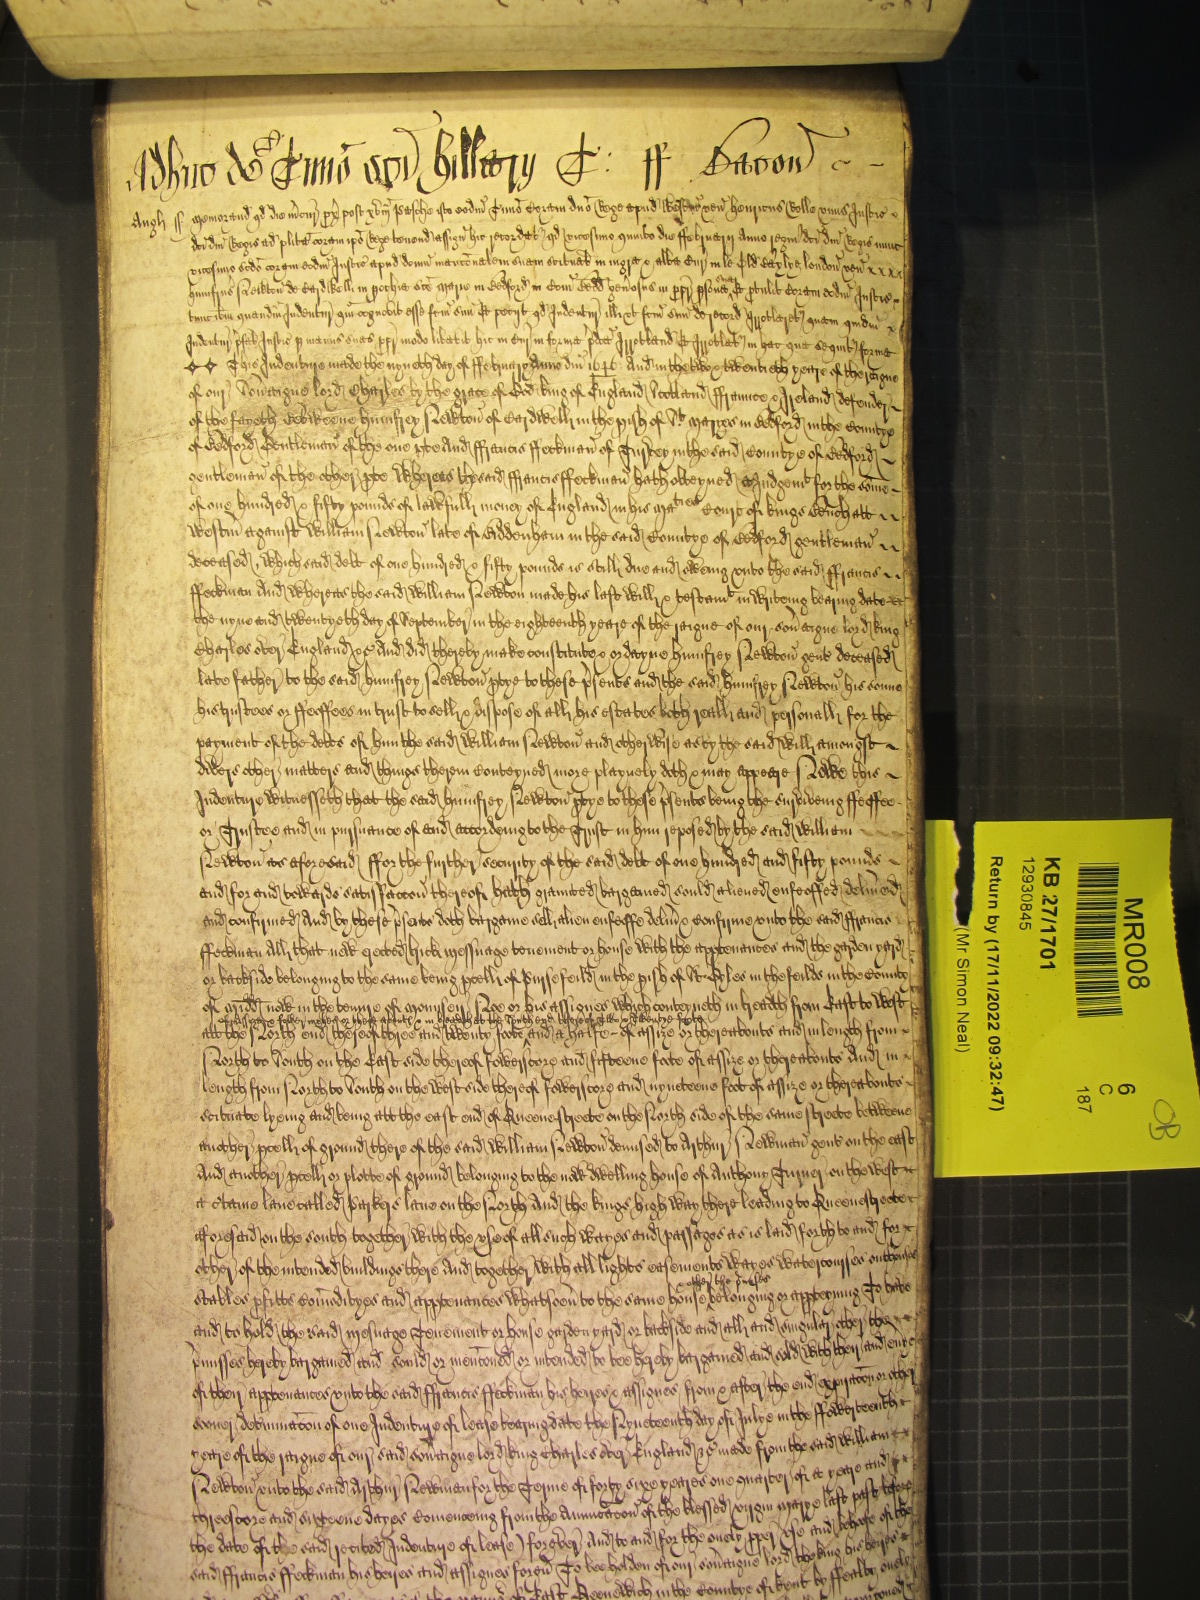 Adhuc de Timo sci Hillary T: ff Bacon
Angli ss Memorand qd die px post Pasche isto eodm Timo Coram dno Rege apud Westm ven Henricus Rolle unus Justic
dci dni Regis ad plita coram ipo Rege tenend assign hic recordat qd vicesimo quinto die ffebruarij Anno regni dci dni Regis nunc
vicesimo scdo coram eodm Justic apud domu mansionalem suam scituat in in le Old Baylye london ven
Humfrus Newton de Cardwell in pochia sce Marie in Bedford in Com Bedd generosus in ppr psona sua Et protulit Coram eodm Justic
tunc ibm quandm Indentur qm cognovit esse fcm suu Et petijt qd Indentur ill ut fcm suu de record Irrotlaret quam quidm
Indentur pfat Justic p manus suas ppr modo libavit hic in Cur in forma pdca Irrotland Et Irrotlat in hac que sequit forma
This Indenture made the nyneth day of ffebruary Anno dni 1646 And in the two & twentieth yeare of the raigne
of our Soveraigne lord Charles by the grace of God king of England Scotland ffrance & Ireland defender
of the fayeth Betweene Humfrey Newton of Cardwell in the pish of St Maryes in Bedford in the Countye
of Bedford Gentleman of the one pte And ffrancis ffeckman of Turvey in the said Countye of Bedford
gentleman of the other pte Whereas the said ffrancis ffeckman hath obteyned a Judgemt for the some
of one hundred & fifty pounds of lawfull money of England in his Maties Court of kings Bench att
Westm against William Newton late of Biddenham in the said Countye of Bedford gentleman
deceased, which said debt of one hundred & fifty pounds is still due and oweing unto the said ffrancis
ffeckman And Whereas the said William Newton made his last will & testamt in writeing beareing date
the nyne and twentyeth day of September in the eighteenth yeare of the raigne of our soveraigne lord king
Charles over England &c And did thereby make constitute & ordayne Humfrey Newton gent deceased
late father to the said Humfrey Newton ptye to these psents and the said Humfrey Newton his sonne
his trustees or ffeoffees in trust to sell & dispose of all his estates both reall and personall for the
payment of the debts of him the said William Newton and otherwise as by the said will amongst
divers other matters and things therein Conteyned more playnely doth & may appeare Nowe this
Indenture witnesseth that the said Humfrey Newton ptye to these psents being the surviveing ffeoffee
or Trustee and in pursuance of and accordeing to the Trust in him reposed by the said William
Newton as aforesaid ffor the further security of the said debt of one hundred and fifty pounds
and for and towards satisfaccon thereof hath graunted bargained sould aliened enfeoffed delivred
and confirmed And by these psents doth bargaine sell alien enfeoffe delivr & Confirme unto the said ffrancis
ffeckman All that new erected brick messuage tenement or house with the apptenances and the garden yard
or backside belonging to the same being pcell of Pursefeild in the pish of St Gyles in the feilds in the Countie
of Midd now in the tenure of Lee or his assignes which conteyneth in breadth from East to West
att the North end thereof three and twenty foote and a halfe of assize or thereabouts and in length from
North to South on the East side thereof fowerscore and fifteene foote of assize or thereabouts And in
length from North to South on the West side thereof fowerscore and nyneteene foot of assize or thereabouts
scituate lyeing and being att the east end of Queenestreete on the North side of the same streete betweene
another pcell of ground there of the said William Newton demised to Arthur Newman gent on the east
And another pcell or plotte of ground belonging to the now dwelling house of Anthony Turner on the west
a Ctaine lane called Parkers lane on the North And the kings high way there leading to Queenestreete
aforesaid on the south together with the use of all such wayes and passages as is laid forth to and for
other of the intended buildings there And together with all lights easements wayes watercourses outhouses
& other the pmisses
stables pfitts Comodityes and apptenances whatsoevr to the same house belonging or apptening To have
and to hold the said messuage Tenement or house garden yard or backside and all and singular other the
pmisses hereby bargained and sould or mentoned or intended to bee hereby bargained and sold with their and every
of their apptenances unto the said ffrancis ffeckman his heires & assignes from & after the end expiracon or other
sooner determinacon of one Indenture of lease beareing date the Nyneteenth day of Julye in the ffowerteenth
yeare of the raigne of our said soveraigne lord king Charles over England &c made from the said William
Newton unto the said Arthur Newman for the Terme of forty sixe yeares one quarter of a yeare and
threescore and sixteene dayes Comenceing from the Annuncacon of the blessed virgin Marye last past before
the date of the said recited Indenture of lease forever And to and for the onely pper use and behoofe of the
said ffrancis ffeckman his heires and assignes forevr To bee holden of our soveraigne lord the king his heires
of East Greenewich in the Countye of Kent by fealty onely
MR008
KB 27/1701
12930845
Return by (17/11/2022 09:32:47)
(Mr Simon Neal)
6
C
187
OB